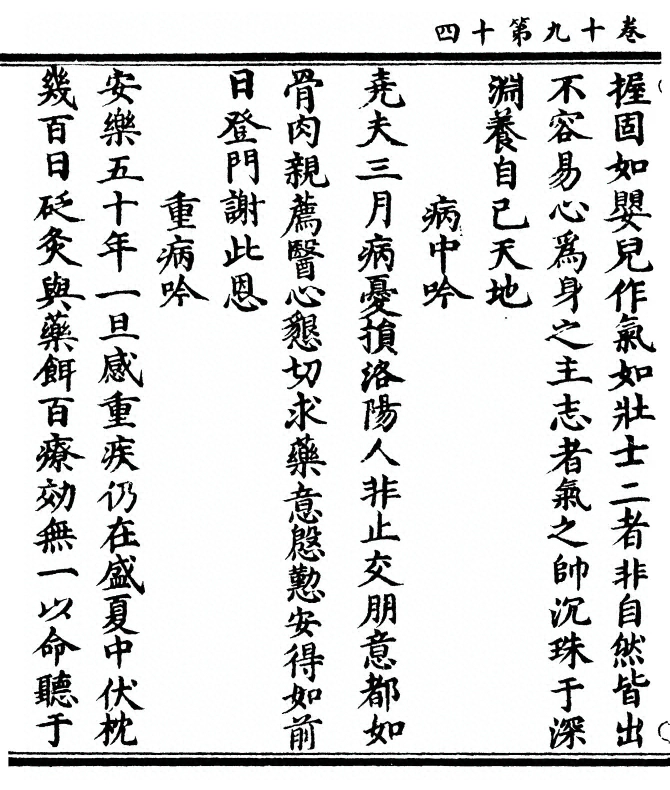 卷十九第十四
握固如嬰兒作氣如壯士二者非自然皆出
不容易心爲身之主志者氣之帥沉珠于深
淵養自己天地
病中吟
堯夫三月病憂損洛陽人非止交朋意都如
骨肉親薦醫心懇切求藥意慇懃安得如前
日登門謝此恩
重病吟
安樂五十年一旦感重疾仍在盛夏中伏枕
幾百日砭灸與藥餌百療効無一以命聽于